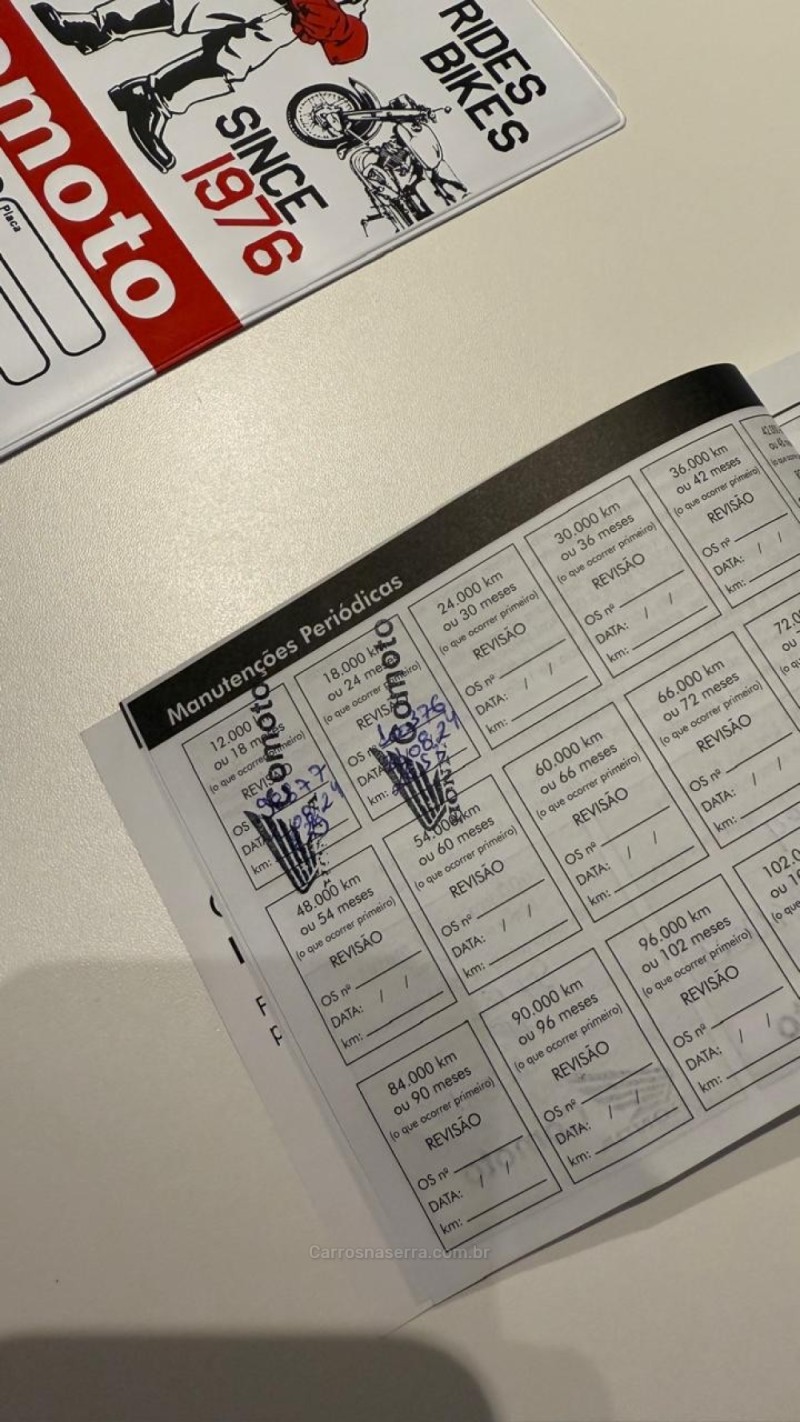 RIDES
BIKES
SINCE
1976
moto
Placa
Manutenções Periódicas
12.000 km
ou 18 meses
(o que ocorrer primeiro)
OS nº
DATA:
km:
18.000 km
ou 24 meses
(o que ocorrer primeiro)
REVISÃO
OS nº
DATA:
km:
24.000 km
ou 30 meses
(o que ocorrer primeiro)
REVISÃO
OS nº
DATA: / /
km:
30.000 km
ou 36 meses
(o que ocorrer primeiro)
REVISÃO
OS nº
DATA: / /
km:
36.000 km
ou 42 meses
(o que ocorrer primeiro)
REVISÃO
OS nº
DATA: / /
km:
48.000 km
ou 54 meses
(o que ocorrer primeiro)
REVISÃO
OS nº
DATA: / /
km:
54.000 km
ou 60 meses
(o que ocorrer primeiro)
REVISÃO
OS nº
DATA: / /
km:
60.000 km
ou 66 meses
(o que ocorrer primeiro)
REVISÃO
OS nº
DATA: / /
km:
66.000 km
ou 72 meses
(o que ocorrer primeiro)
REVISÃO
OS nº
DATA: / /
km:
84.000 km
ou 90 meses
(o que ocorrer primeiro)
REVISÃO
OS nº
DATA: / /
km:
90.000 km
ou 96 meses
(o que ocorrer primeiro)
REVISÃO
OS nº
DATA: / /
km:
96.000 km
ou 102 meses
(o que ocorrer primeiro)
REVISÃO
OS nº
DATA: / /
km:
Carrosnaserra.com.br